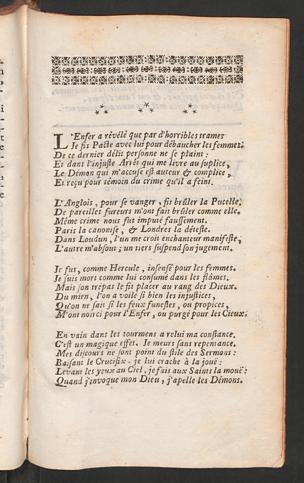 L'Enfer a révélé que par d'horribles trames
Je fis Pacte avec lui pour débaucher les femmes:
De ce dernier délit personne ne se plaint;
Et dans l'injuste Arrêt qui me livre au suplice,
Le Démon qui m'accuse est auteur & complice,
Et reçu pour témoin du crime qu'il a feint.
L'Anglois, pour se vanger, fit brûler la Pucelle,
De pareilles fureurs m'ont fait brûler comme elle.
Même crime nous fut imputé faussement.
Paris la canonise, & Londres la déteste.
Dans Loudun, l'un me croit enchanteur manifeste,
L'autre m'absout; un tiers suspend son jugement.
Je fus, comme Hercule, insensé pour les femmes.
Je suis mort comme lui consumé dans les flâmes,
Mais son trépas le fit placer au rang des Dieux.
Du mien, l'on a voilé si bien les injustices,
Qu'on ne sait si les feux funestes, ou propices,
M'ont noirci pour l'Enfer, ou purgé pour les Cieux.
En vain dans les tourmens a relui ma constance.
C'est un magique effet. Je meurs sans repentance.
Mes discours ne sont point du stile des Sermons:
Baisant le Crucifix, je lui crache à la jouë:
Levant les yeux au Ciel, je fais aux Saints la mouë:
Quand j'invoque mon Dieu, j'apelle les Démons.